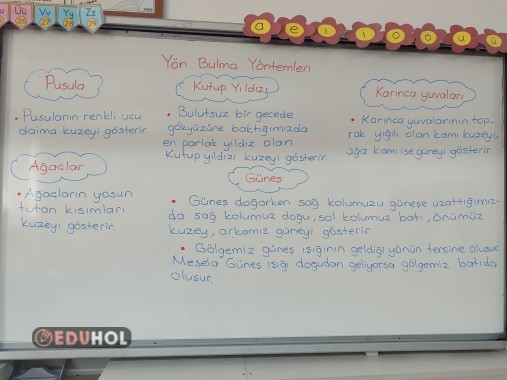 Üü Vv Yy Zz
26 27 28 29
a e ı i o ö u ü
Yön Bulma Yöntemleri
Pusula
• Pusulanın renkli ucu
daima kuzeyi gösterir.
Kutup Yıldızı
• Bulutsuz bir gecede
gökyüzüne baktığımızda
en parlak yıldız olan
Kutup yıldızı kuzeyi gösterir.
Karınca yuvaları
• Karınca yuvalarının top-
rak yığılı olan kısmı kuzeyi,
ağız kısmı ise güneyi gösterir.
Ağaçlar
• Ağaçların yosun
tutan kısımları
kuzeyi gösterir.
Güneş
• Güneş doğarken sağ kolumuzu güneşe uzattığımız-
da sağ kolumuz doğu, sol kolumuz batı, önümüz
kuzey, arkamız güneyi gösterir.
• Gölgemiz güneş ışığının geldiği yönün tersine oluşur.
Mesela Güneş ışığı doğudan geliyorsa gölgemiz batıda
oluşur.
EDUHOL